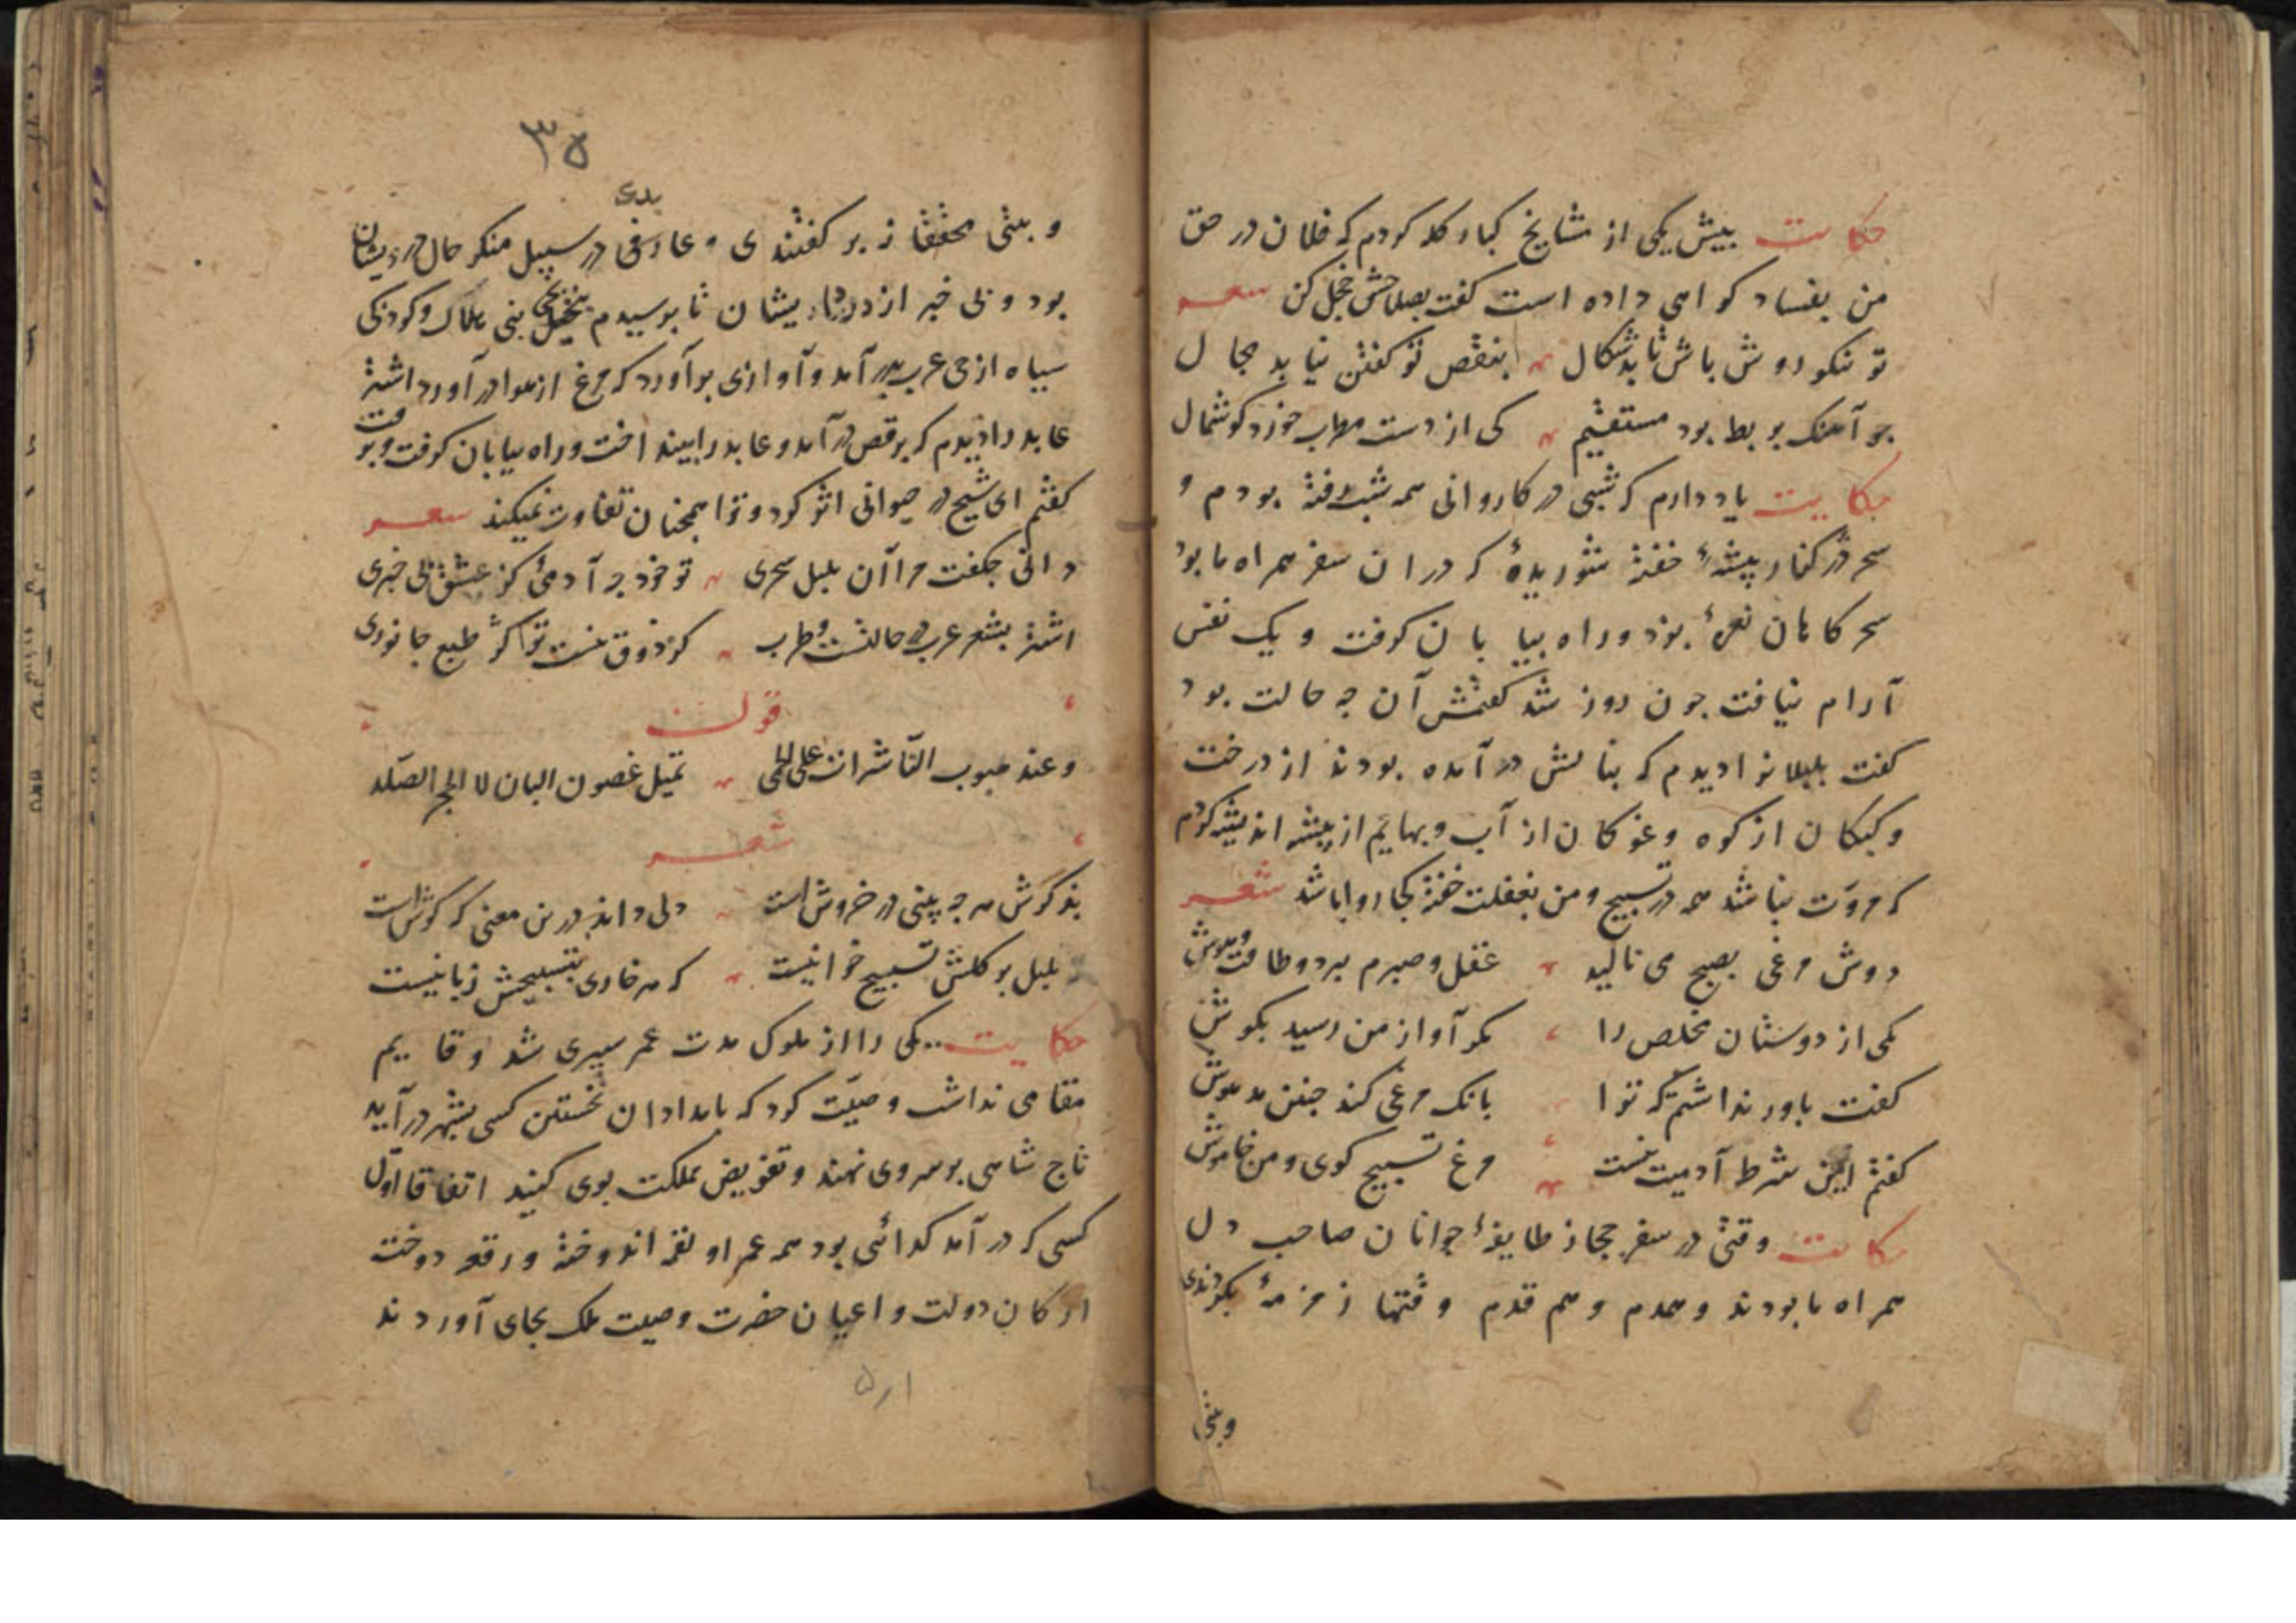 حکایت پیش یکی از مشایخ کبار کله کردم که فلان در حق
من بفساد کواهی داده است کفت بصلاحش خجل کن شعر
تو نیکو روش باش تا بدسکال بنقص تو کفتن نیابد مجال
جو آهنک بربط بود مستقیم کی از دست مطرب خورد کوشمال
حکایت یاد دارم که شبی در کاروانی همه شب رفته بودم و
سحر در کنار بیشهٔ خفته شوریدهٔ که دران سفر همراه ما بود
سحرکاهان نعرهٔ بزد و راه بیابان کرفت و یک نفس
آرام نیافت جون روز شد کفتمش آن جه حالت بود
کفت بلبلانرا دیدم که بنالش در آمده بودند از درخت
و کبکان از کوه و غوکان از آب و بهایم از بیشه اندیشه کردم
که مروّت نباشد همه در تسبیح و من بغفلت خفته کجا روا باشد شعر
دوش مرغی بصبح می نالید عقل و صبرم ببرد و طاقت و هوش
یکی از دوستان مخلص را مکر آواز من رسید بکوش
کفت باور نداشتم که ترا بانک مرغی کند جنین مدهوش
کفتم این شرط آدمیت نیست مرغ تسبیح کوی و من خاموش
حکایت وقتی در سفر حجاز طایفهٔ جوانان صاحب دل
همراه ما بودند و همدم و هم قدم وقتها زمزمهٔ بکردندی
وبیتی
۳۵
و بیتی محققانه بر کفتندی و عارفی در سبیل منکر حال درویشان
بدی
بود و بی خبر از درد ایشان تا برسیدم بنخیل بنی هلال و کودکی
سیاه از حی عرب بدر آمد و آوازی برآورد که مرغ از هوا در آورد اشتر
عابد را دیدم که برقص در آمد و عابد را بینداخت و راه بیابان کرفت و برفت
کفتم ای شیخ در حیوانی اثر کرد و ترا همچنان تفاوت نمیکند شعر
دانی جکفت مرا آن بلبل سحری تو خود جه آدمیٔ کز عشق بی خبری
اشتر بشعر عرب در حالتست و طرب کر ذوق نیست ترا کژ طبع جانوری
قوله
وعند هبوب النّاشرات علی الحمی تمیل غصون البان لا الحجر الصّلد
شعر
بذکرش هرجه بینی در خروش است دلی داند درین معنی که کوش است
نه بلبل بر کلش تسبیح خوانیست که هر خاری بتسبیحش زبانیست
حکایت یکی را از ملوک مدت عمر سپری شد و قایم
مقامی نداشت وصیّت کرد که بامدادان نخستین کسی بشهر در آید
تاج شاهی بر سر وی نهند و تفویض مملکت بوی کنند اتفاقا اوّل
کسی که در آمد کدائی بود همه عمر او لقمه اندوخته و رقعه دوخته
ارکان دولت و اعیان حضرت وصیت ملک بجای آوردند